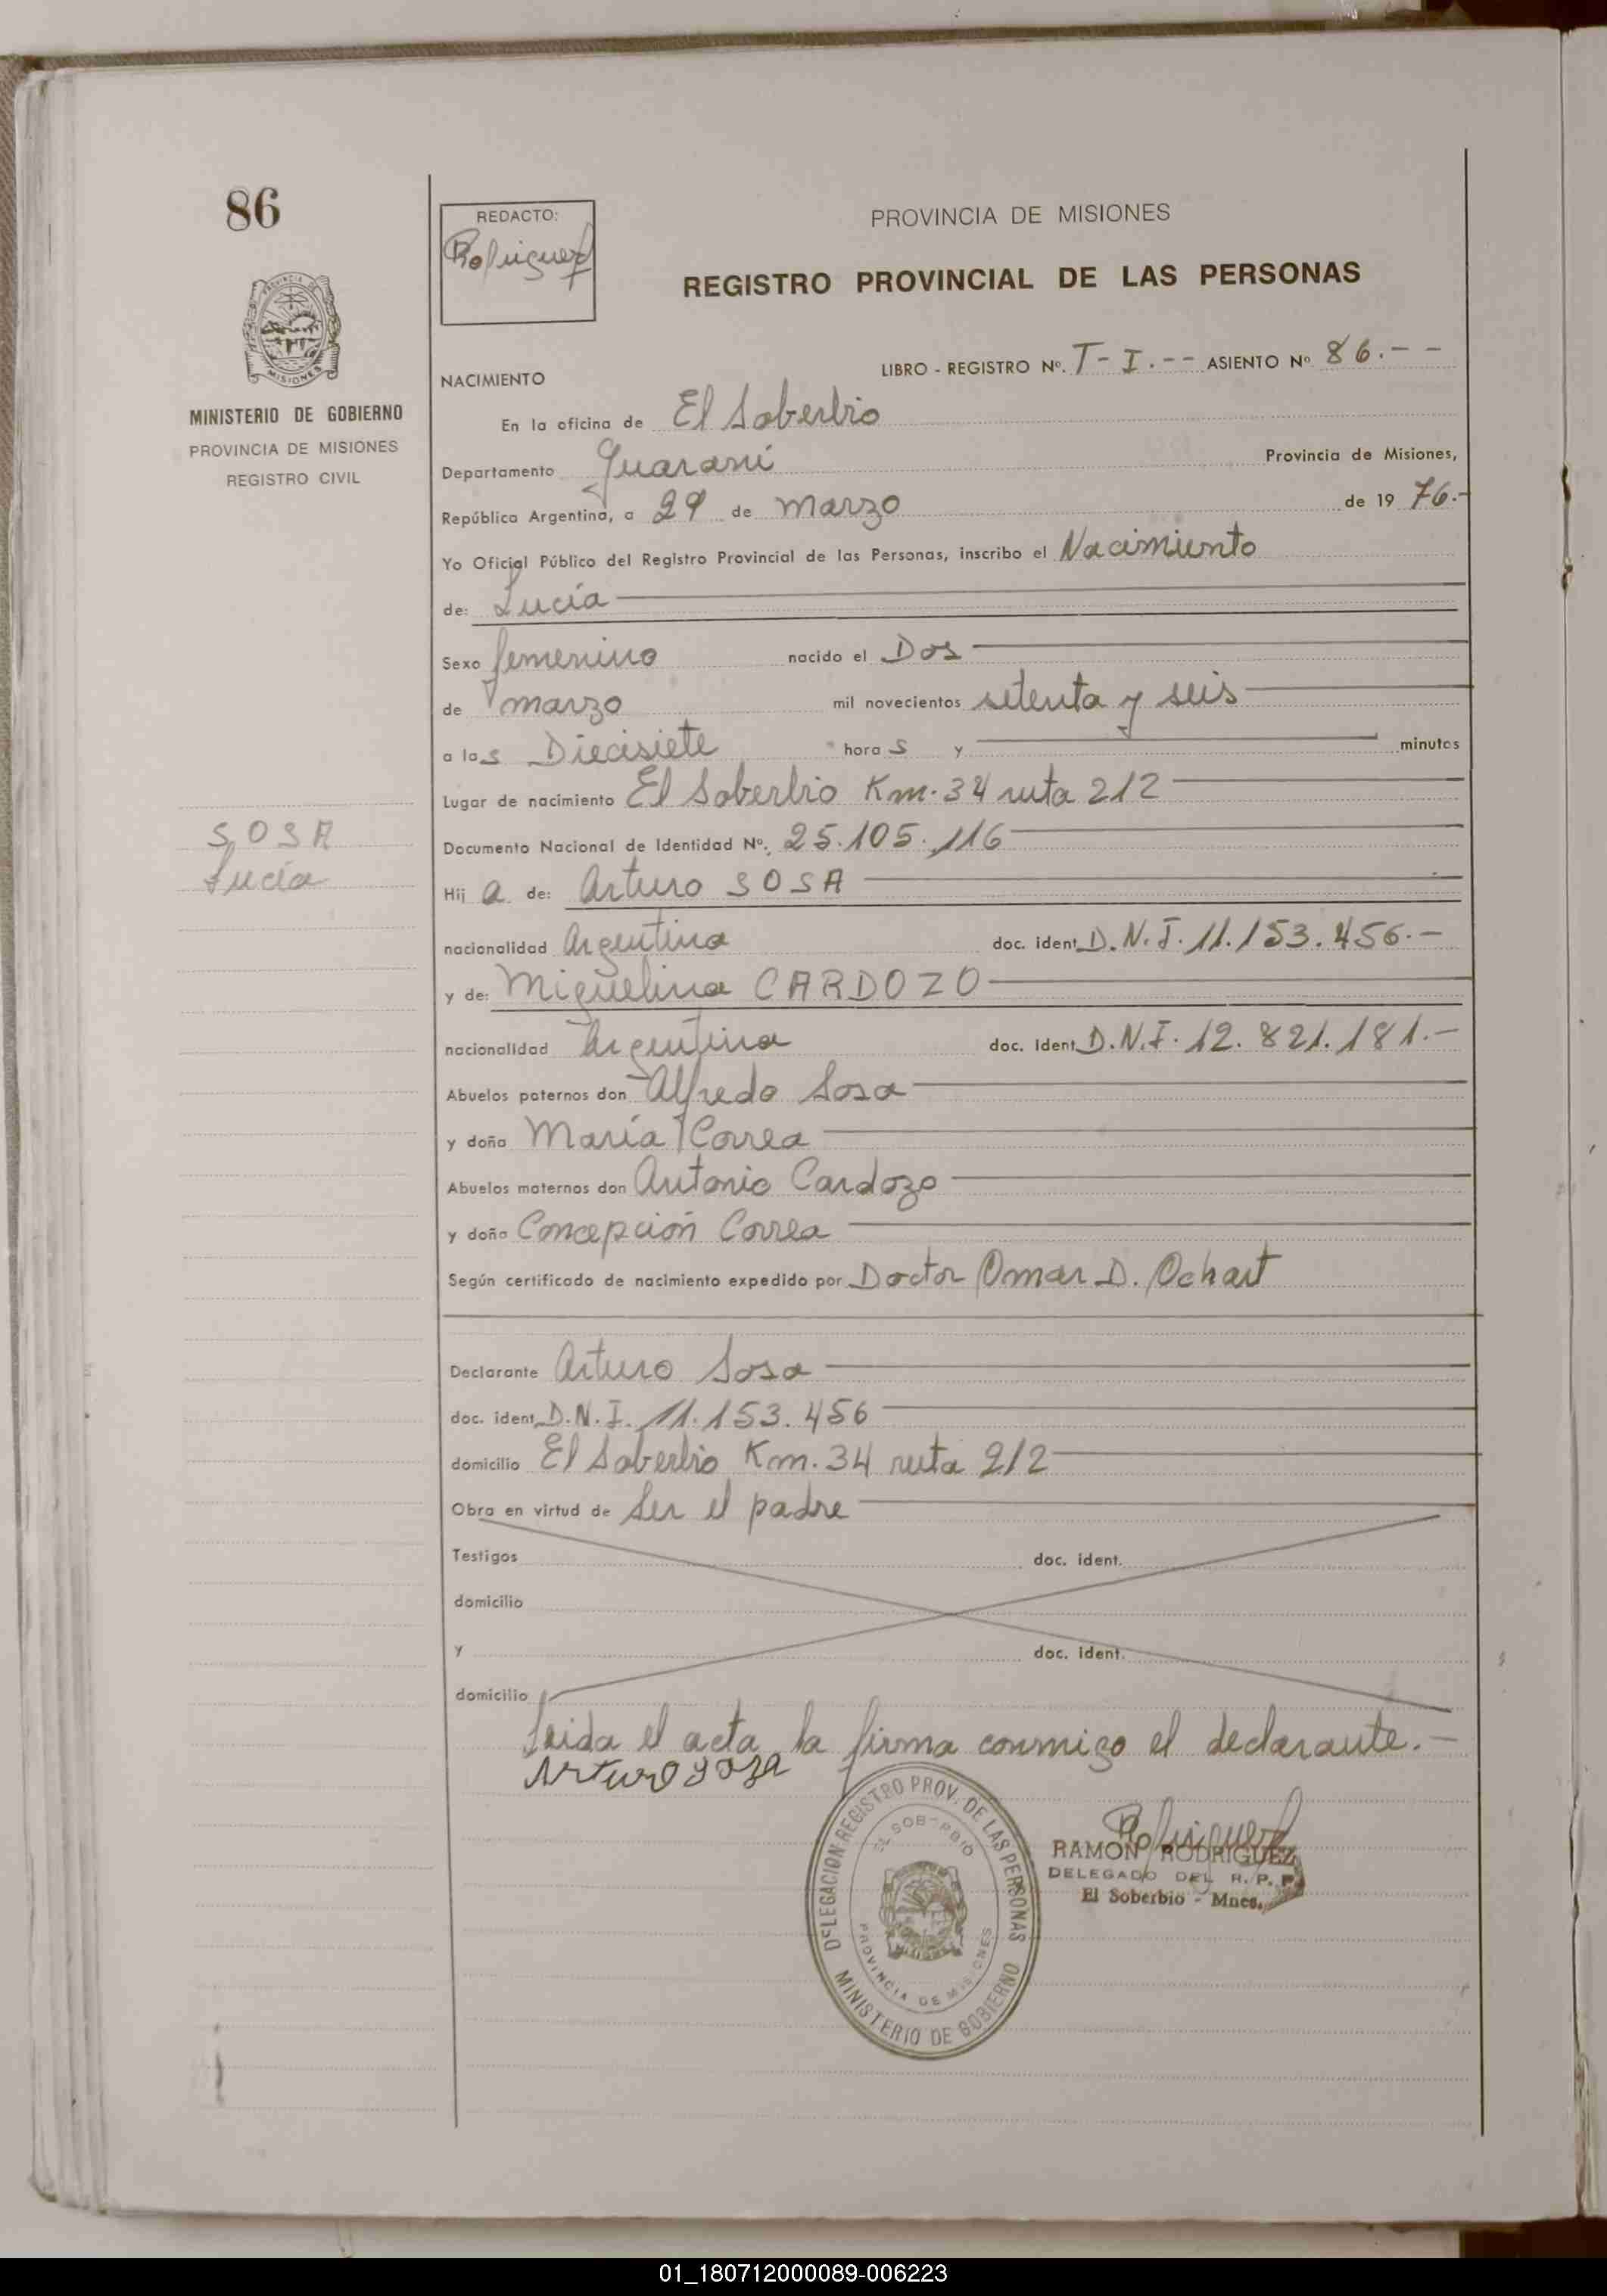 86
REDACTO:
Rodriguez
PROVINCIA DE MISIONES
REGISTRO PROVINCIAL DE LAS PERSONAS
MISIONES
MINISTERIO DE GOBIERNO
PROVINCIA DE MISIONES
REGISTRO CIVIL
LIBRO - REGISTRO Nº. T - I. - - ASIENTO Nº 86. - -
NACIMIENTO
En la oficina de El Soberbio
Departamento Guaraní Provincia de Misiones,
República Argentina, a 29 de marzo de 19 76.-
Yo Oficial Público del Registro Provincial de las Personas, inscribo el Nacimiento
de: Lucía
Sexo femenino nacido el Dos
de marzo mil novecientos setenta y seis
a las Diecisiete horas y minutos
Lugar de nacimiento El Soberbio Km. 34 ruta 212
SOSA
Lucía
Documento Nacional de Identidad Nº. 25.105.116
Hij a de: Arturo SOSA
nacionalidad Argentina doc. ident. D.N.I. 11.153.456.-
y de: Miguelina CARDOZO
nacionalidad Argentina doc. ident. D.N.I. 12.821.181.-
Abuelos paternos don Alfredo Sosa
y doña María Correa
Abuelos maternos don Antonio Cardozo
y doña Concepción Correa
Según certificado de nacimiento expedido por Doctor Omar D. Ochart
Declarante Arturo Sosa
doc. ident. D.N.I. 11.153.456
domicilio El Soberbio Km. 34 ruta 212
Obra en virtud de Ser el padre
Testigos doc. ident.
domicilio
y doc. ident.
domicilio
Leida el acta, la firma conmigo el declarante.-
Arturo Sosa
DELEGACION REGISTRO PROV. DE LAS PERSONAS
EL SOBERBIO
PROVINCIA DE MISIONES
MINISTERIO DE GOBIERNO
Rodriguez
RAMON RODRIGUEZ
DELEGADO DEL R. P. P.
El Soberbio - Mnes.
01_180712000089-006223